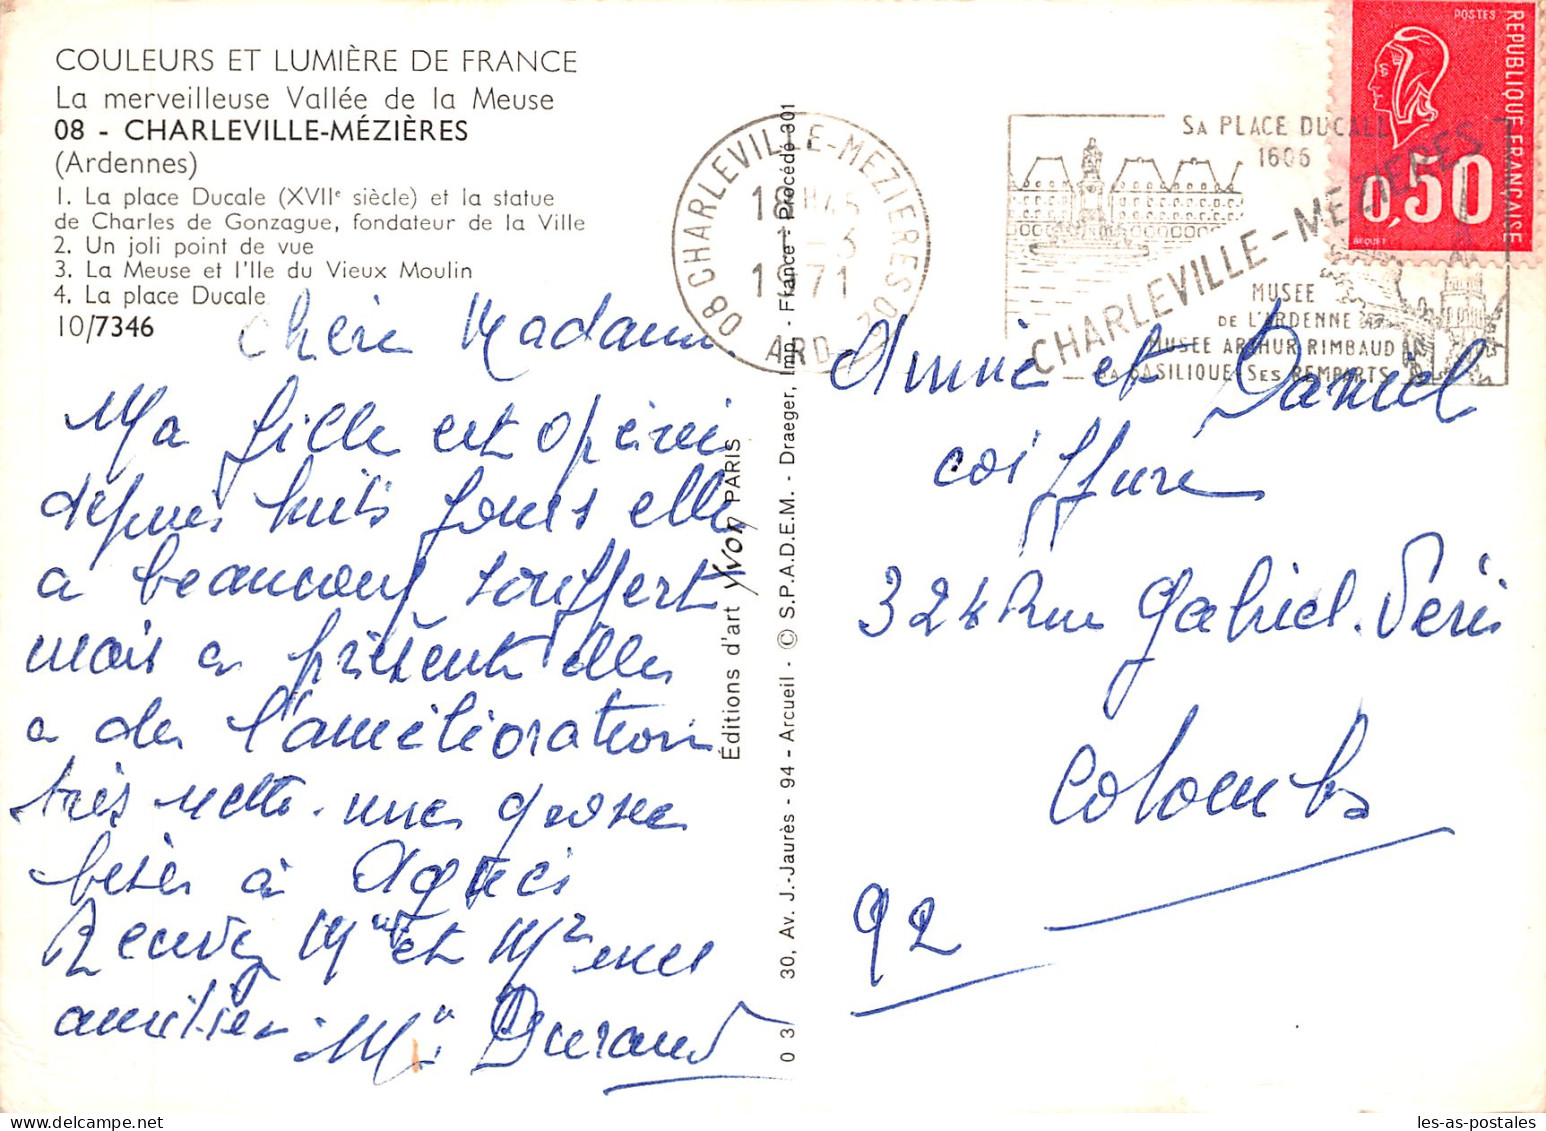 COULEURS ET LUMIÈRE DE FRANCE
La merveilleuse Vallée de la Meuse
08 - CHARLEVILLE-MÉZIÈRES
(Ardennes)
1. La place Ducale (XVIIe siècle) et la statue
de Charles de Gonzague, fondateur de la Ville
2. Un joli point de vue
3. La Meuse et l'Ile du Vieux Moulin
4. La place Ducale
10/7346
Chère Madame
Ma fille est opérée
depuis huits jours elle
a beaucoup souffert
mais a présent elle
a de l'amélioration
très nette. une grosse
bises à Agnès
Recevez Mme et Mr mes
amitiés Me Durand
Éditions d'art Yvon PARIS
30, Av. J.-Jaurès - 94 - Arcueil - © S.P.A.D.E.M. - Draeger, Imp. - France - Procédé 301
0 3
08 CHARLEVILLE-MEZIERES 08
1971
ARD
SA PLACE DUCALE
1606
CHARLEVILLE-MEZIERES
MUSEE
DE L'ARDENNE
MUSEE ARTHUR RIMBAUD
SA BASILIQUE-SES REMPARTS
POSTES
REPUBLIQUE FRANÇAISE
0,50
BEQUET
Annie et Daniel
coiffure
324 Rue Gabriel. Péri
Colombes
92
les-as-postales